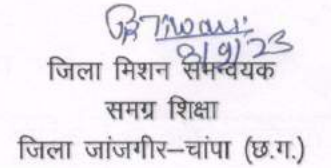 8/9/23
जिला मिशन समन्वयक
समग्र शिक्षा
जिला जांजगीर–चांपा (छ.ग.)